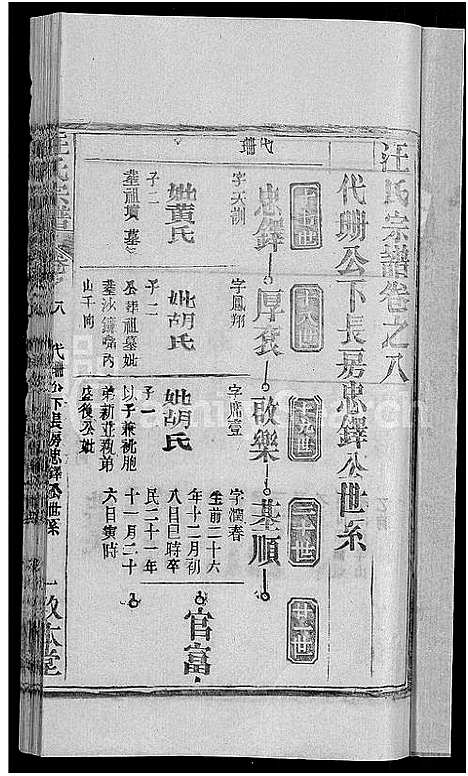 汪氏宗譜卷之八
代珊公下長房忠鐸公世系
十七世
十八世
十九世
二十世
廿一世
忠鐸
厚袞
啟樂
基順
字天訓
妣黃氏
子二
葬祖墳墓
字鳳翔
妣胡氏
子二
公葬祖墓妣
葬沙鐘嘴丙
山壬向
字席壹
妣胡氏
子一
以子兼祧胞
弟新並親弟
盛後公妣
字潤春
生前二十六
年十二月初
八日巳時卒
民二十一年
十一月二十
六日寅時
官富
代珊
汪氏宗譜
卷之八
代珊公下長房忠鐸公世系
一
敦本堂